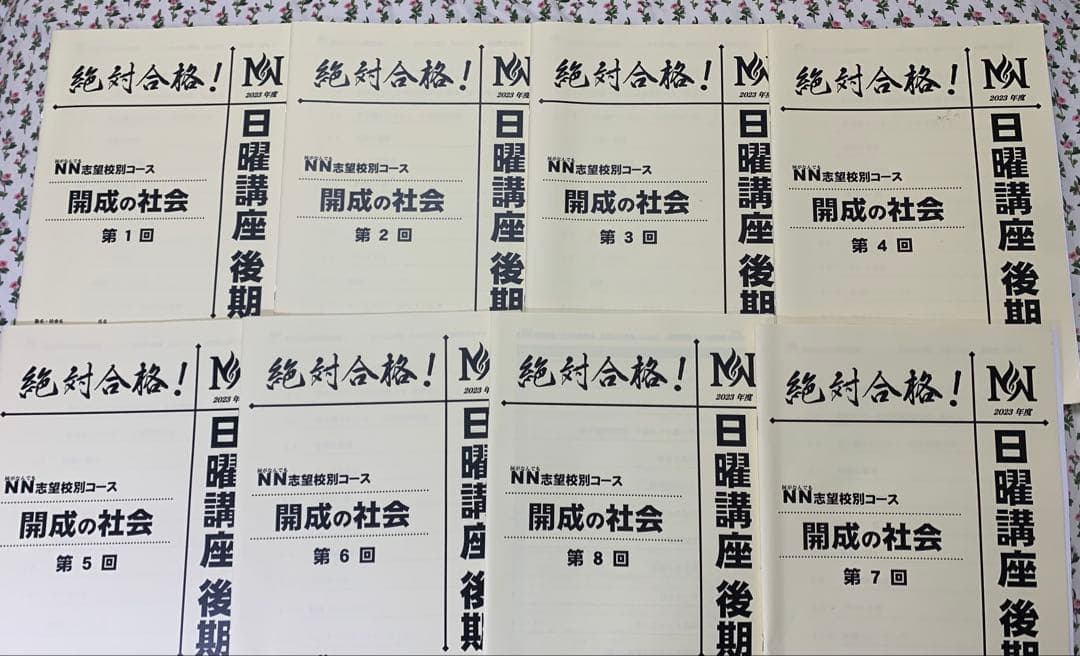 絶対合格!
2023年度
日曜講座 後期
何がなんでも
NN志望校別コース
開成の社会
第1回
絶対合格!
2023年度
日曜講座 後期
何がなんでも
NN志望校別コース
開成の社会
第2回
絶対合格!
2023年度
日曜講座 後期
何がなんでも
NN志望校別コース
開成の社会
第3回
絶対合格!
2023年度
日曜講座 後期
何がなんでも
NN志望校別コース
開成の社会
第4回
絶対合格!
2023年
日曜講座 後期
何がなんでも
NN志望校別コース
開成の社会
第5回
絶対合格!
2023年
日曜講座 後期
何がなんでも
NN志望校別コース
開成の社会
第6回
絶対合格!
2023年度
日曜講座 後期
何がなんでも
NN志望校別コース
開成の社会
第8回
絶対合格!
2023年度
日曜講座 後期
何がなんでも
NN志望校別コース
開成の社会
第7回